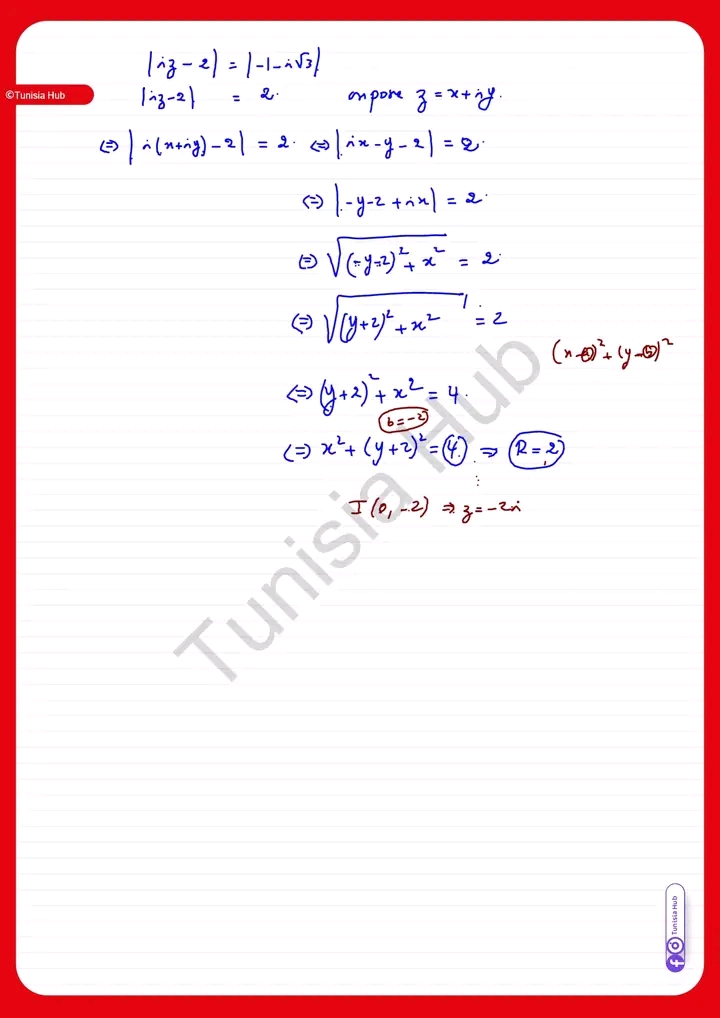 |iz - 2| = |-1 - i√3|
©Tunisia Hub
|iz - 2| = 2. on pose z = x + iy.
⇔ |i(x+iy) - 2| = 2. ⇔ |ix - y - 2| = 2.
⇔ |-y - 2 + ix| = 2.
⇔ √((-y-2)² + x²) = 2.
⇔ √((y+2)² + x²) = 2
(x - a)² + (y - b)²
⇔ (y + 2)² + x² = 4.
b = -2
⇔ x² + (y + 2)² = 4. ⇒ R = 2
I(0, -2) ⇒ z = -2i
Tunisia Hub
Tunisia Hub